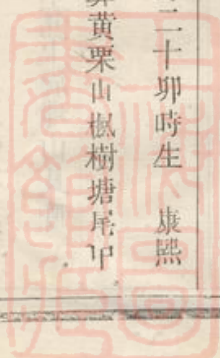 二十卯時生　康熙
黃栗山楓樹塘尾甲